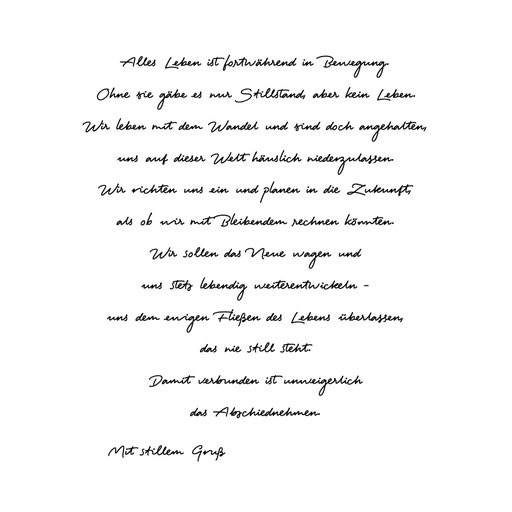 Alles Leben ist fortwährend in Bewegung.
Ohne sie gäbe es nur Stillstand, aber kein Leben.
Wir leben mit dem Wandel und sind doch angehalten,
uns auf dieser Welt häuslich niederzulassen.
Wir richten uns ein und planen in die Zukunft,
als ob wir mit Bleibendem rechnen könnten.
Wir sollen das Neue wagen und
uns stets lebendig weiterentwickeln -
uns dem ewigen Fließen des Lebens überlassen,
das nie still steht.
Damit verbunden ist unweigerlich
das Abschiednehmen.
Mit stillem Gruß